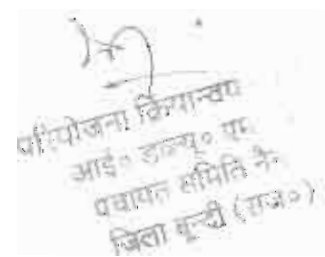 परियोजना क्रियान्वय
आई० डब्ल्यू० एम
पंचायत समिति नै
जिला बून्दी (राज०)